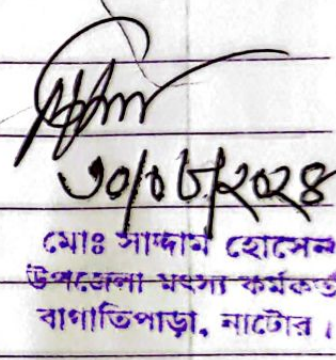 ৩০/০৬/২০২৪
মোঃ সাদ্দাম হোসেন
উপজেলা মৎস্য কর্মকর্তা
বাগাতিপাড়া, নাটোর।